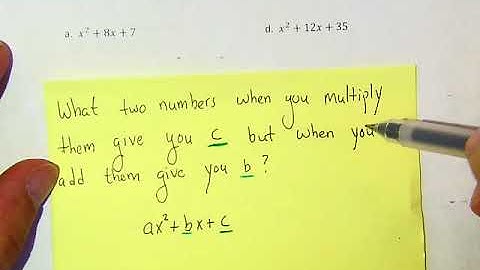 a. x² + 8x + 7
d. x² + 12x + 35
What two numbers when you multiply
them give you c but when you
add them give you b?
ax²+bx+c